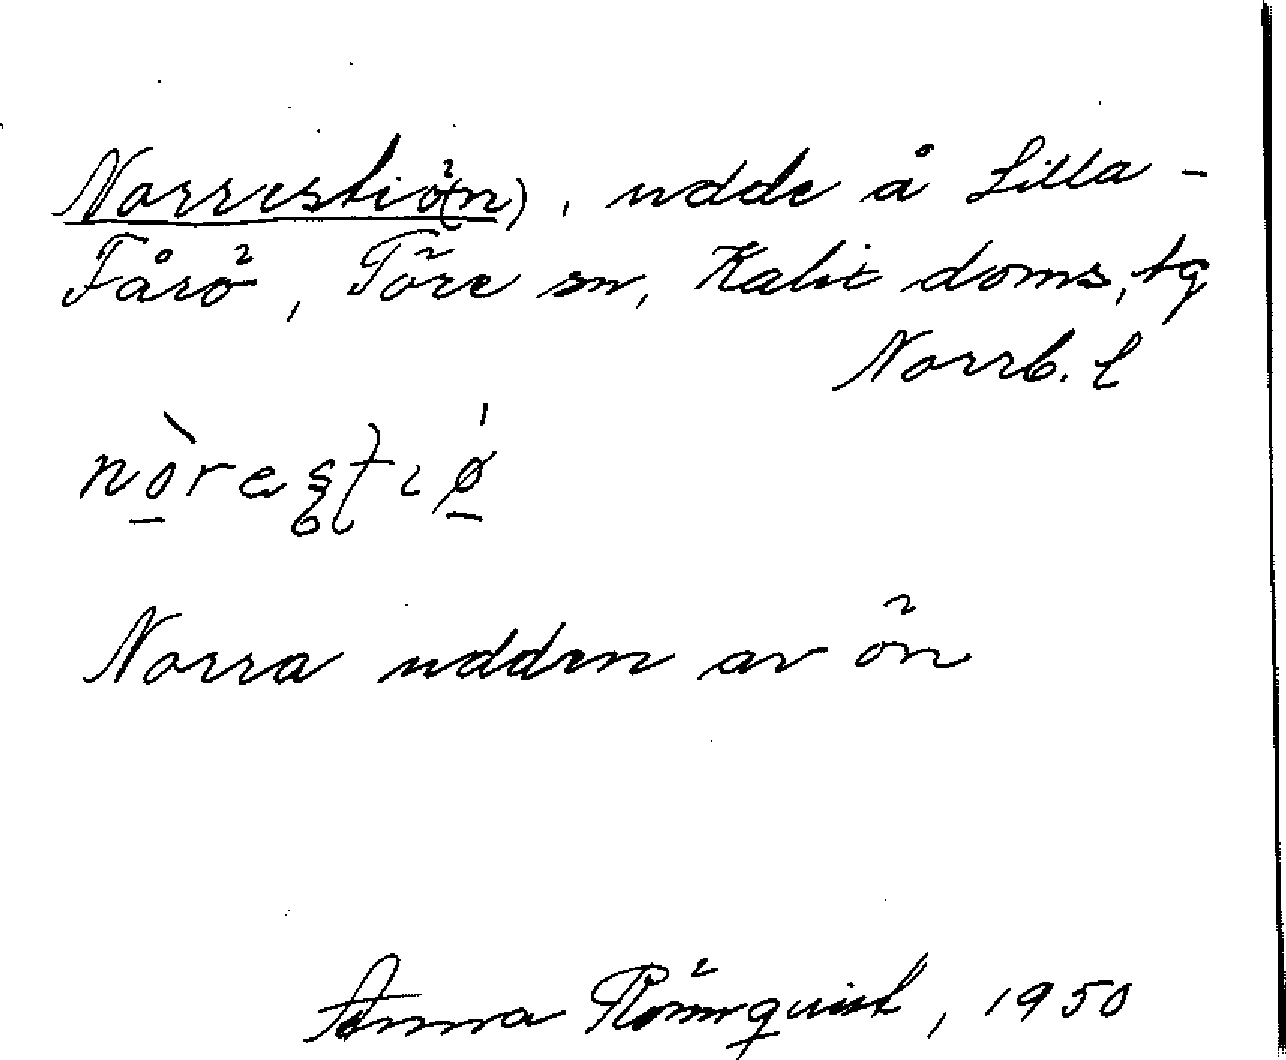 Norrestiö(n), udde å Lilla-
Fårö, Töre sn, Kalix doms, tg
Norrb. l
Norra udden av ön
Anna Rönnquist, 1950